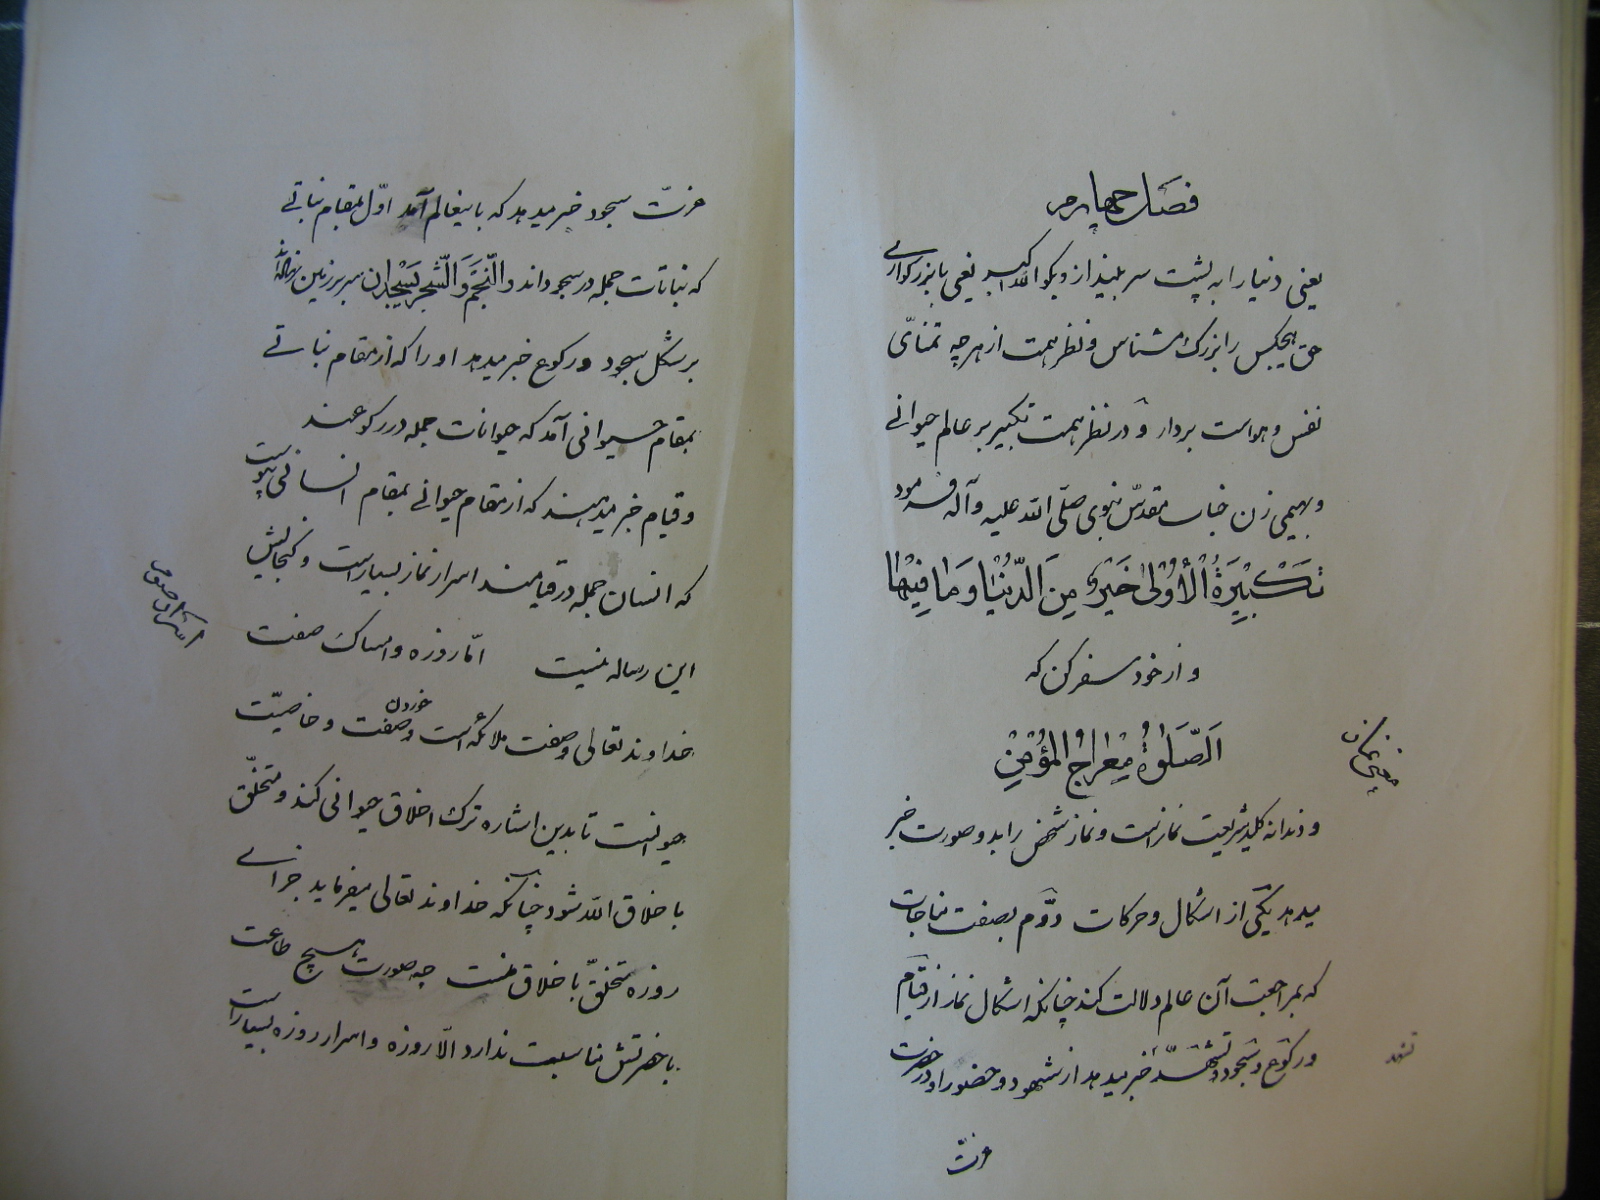 فصل چهارم
یعنی دنیا را به پشت سر بینداز و بگو الله اکبر یعنی با بزرگواری
حق هیچکس را بزرگ مشناس و نظر همت از هر چه تمنّای
نفس و هواست بردار و در نظر همت تکبیر بر عالم حیوانی
و بهیمی زن جناب مقدّس نبوی صلّی الله علیه و آله فرمود
تَکْبِیرَةُ الْأُوْلیٰ خَیْرٌ مِنَ الدُّنْیٰا وَمٰا فِیْهٰا
و از خود سفر کن که
اَلصَّلوٰةُ مِعْرٰاجُ الْمُؤْمِنِ
معنی نماز
و دندانه کلید شریعت نماز است و نماز شخص را بدو صورت خبر
میدهد یکی از اشکال و حرکات دوّم بصفت مناجات
که بمراجعت آن عالم دلالت کند چنانکه اشکال نماز از قیام
و رکوع و سجود و تشهّد خبر میدهد از شهود و حضور او در حضرت
تشهد
عزّت
عزّت سجود خبر میدهد که باینعالم آمد اوّل بمقام نباتی
که نباتات جمله در سجوداند وَالنَّجْمُ وَالشَّجَرُ یَسْجُدٰانِ سر بر زمین نهاده‌اند
بر شکل سجود و رکوع خبر میدهد او را که از مقام نباتی
بمقام حیوانی آمد که حیوانات جمله در رکوعند
و قیام خبر میدهند که از مقام حیوانی بمقام انسانی پیوست
که انسان جمله در قیامند اسرار نماز بسیار است و گنجایش
این رساله نیست امّا روزه و امساک صفت
اسرار صوم
خداوند تعالی و صفت ملائکه است و صفت خوردن و خاصیّت
حیوانست تا بدین اشاره ترک اخلاق حیوانی کند و متخلّق
باخلاق الله شود چنانکه خداوند تعالی میفرماید جزای
روزه متخلّق باخلاق منست چه صورت هیچ طاعت
با حضرتش مناسبت ندارد الّا روزه و اسرار روزه بسیار است